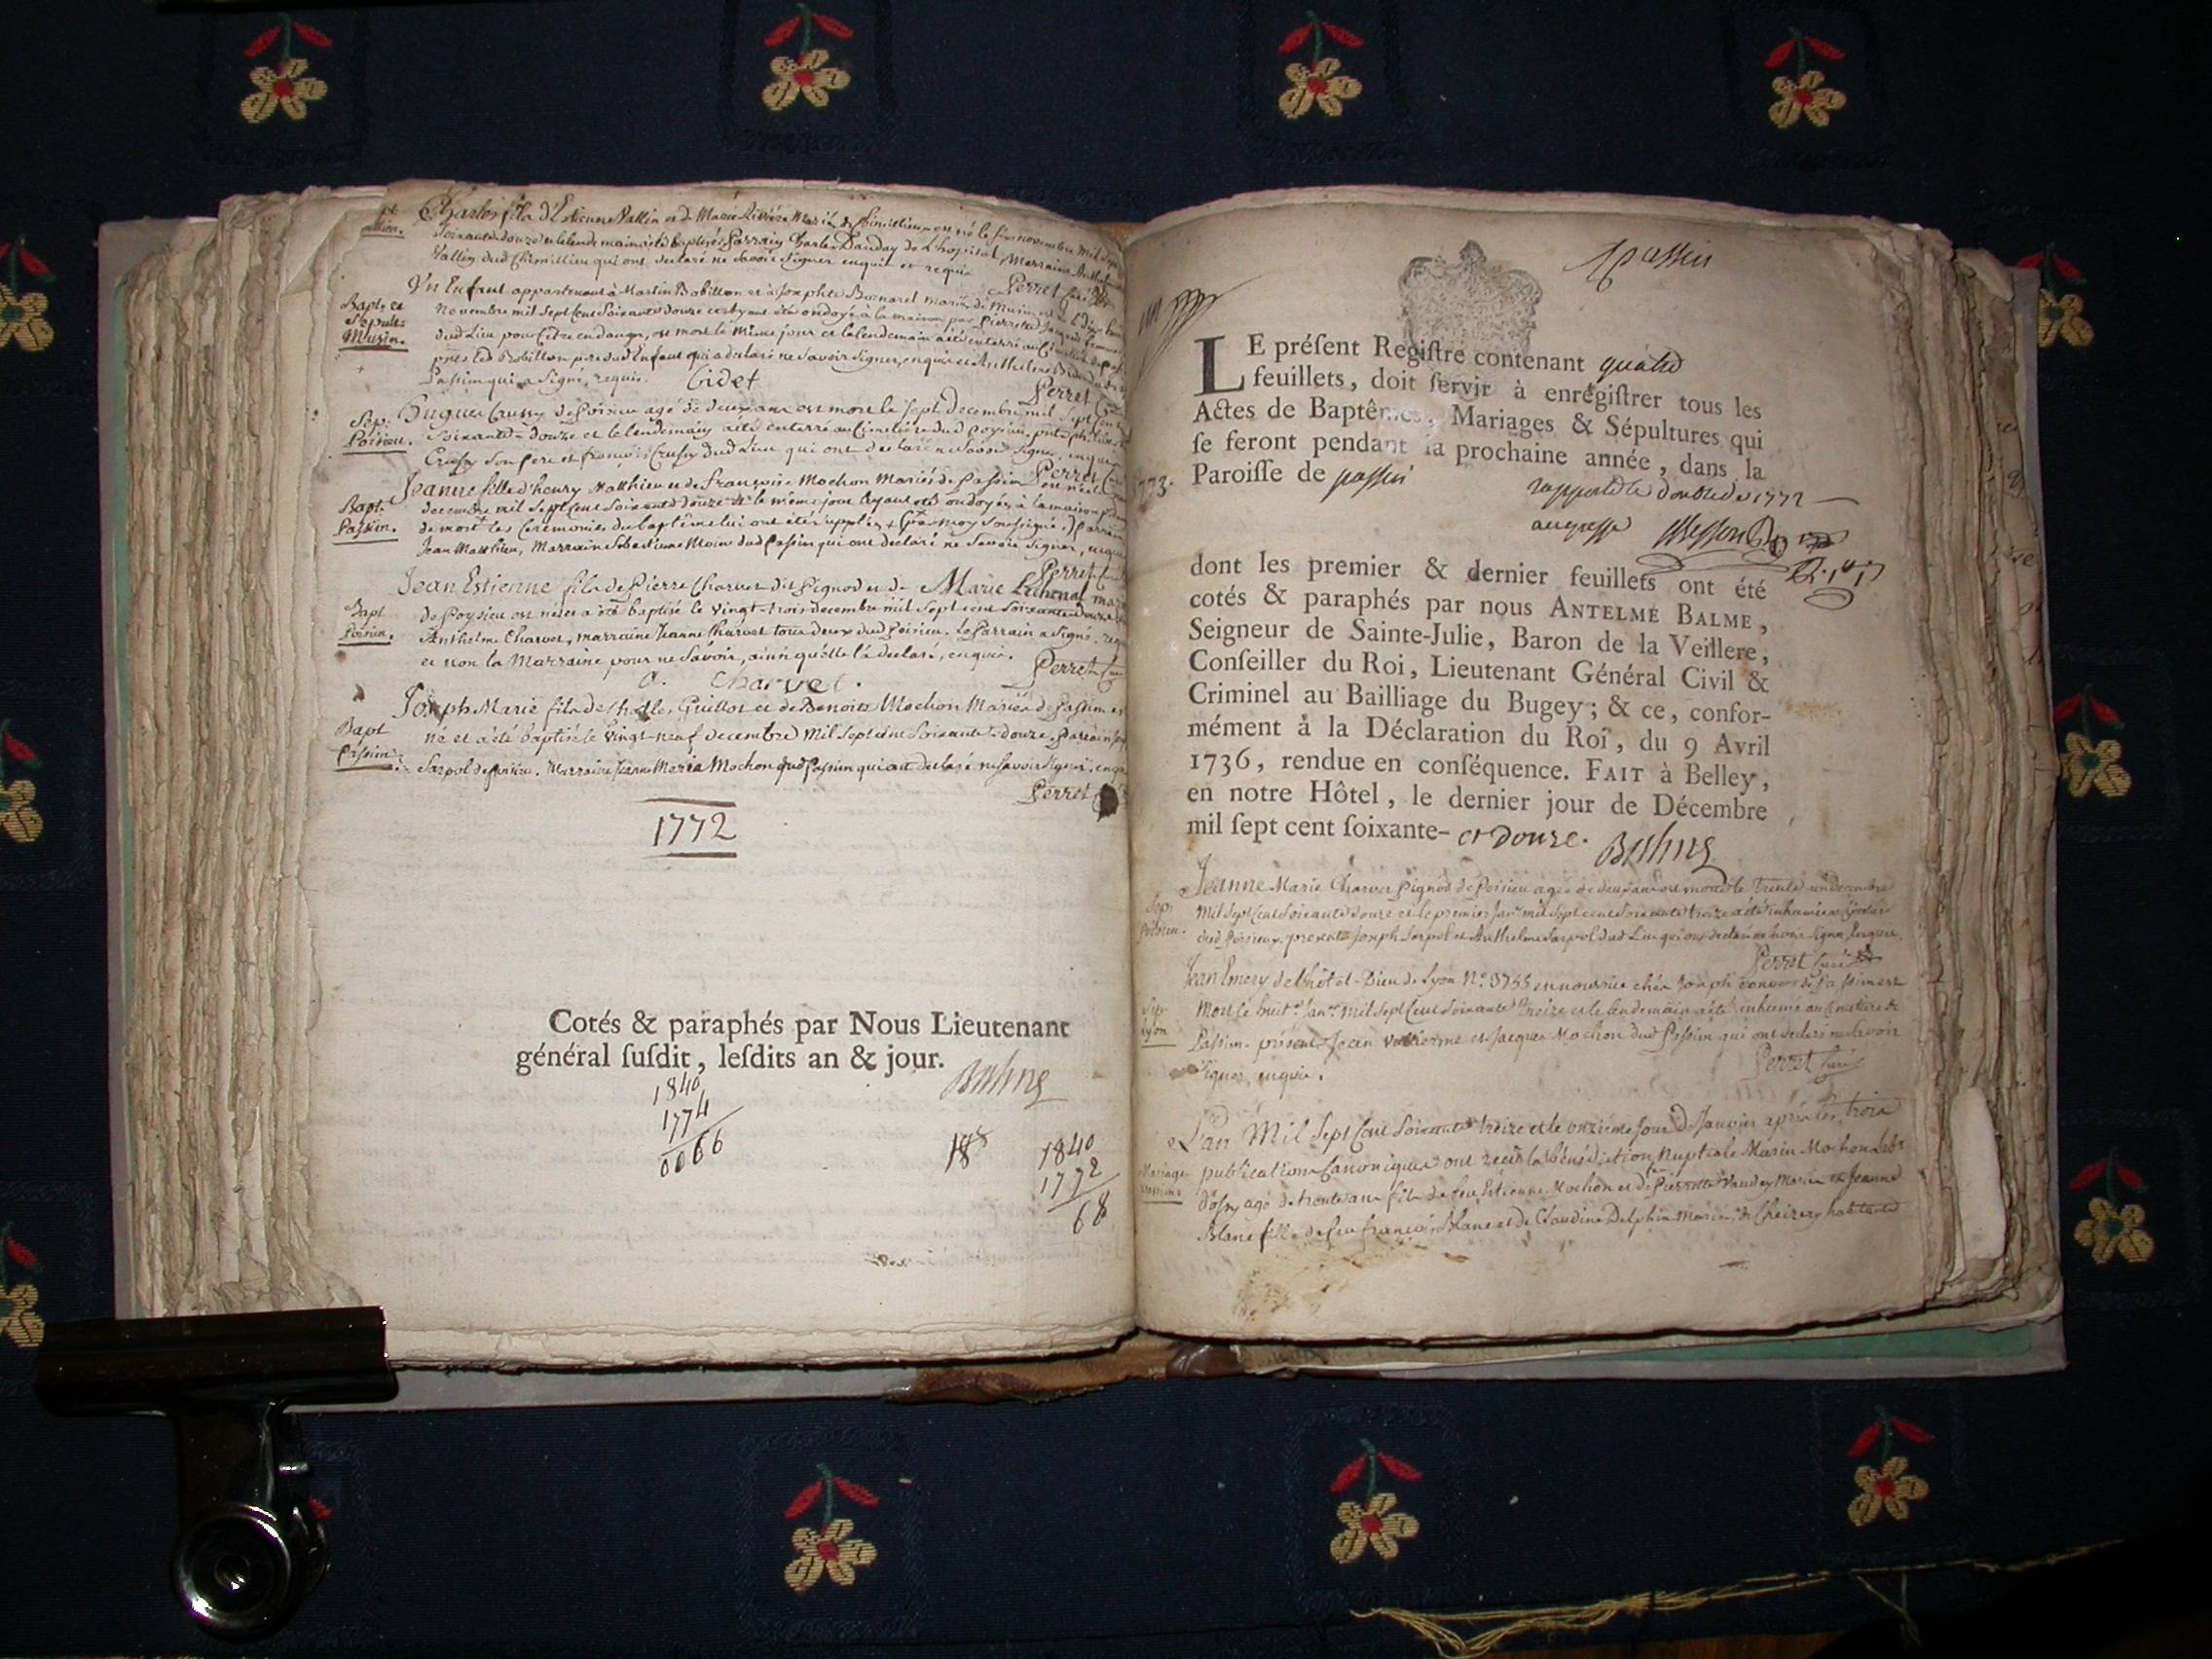 Charles fils d'Estienne Vallin et de Marie Riviére Mariés de Chimillieu est né le six novembre mil sept
Soixante douze et le lendemain a été baptisé, Parrain Charles Dauday de Lhopital, Marraine Anthelme
Vallin dud Chimillieu qui ont declaré ne Savoir Signer enquis et requis
Perret Curé
Un Enfant appartenant à Martin Bobillon et à Josephte Bornarel mariés de Musin est né le dix
Bapt. et
Sepult:
Musin.
Novembre mil Sept Cent Soixante douze et ayant été ondoyé à la maison par Pierrette
dud Lieu pour être en danger, est mort le même jour et le lendemain a été enterré au Cimetière de
pnts led Bobillon pere dud Enfant qui a declaré ne Savoir Signer, enquis et Anthelme
Passin qui a Signé, requis. Cidet
Perret
Hugues Crussy de Poisieu agé de deux ans est mort le Sept Decembre mil Sept Cent
Sep:
Poisieu.
Soixante-douze et le lendemain a été enterré au Cimetière dud Poysieu, pnts
Crussy Son Pere et françois Crussy dud Lieu qui ont declaré ne Savoir Signer, enquis
Perret
Jeanne fille d'henry Matthieu et de Françoise Mochon Mariés de Passin est née le
Bapt.
Passin.
decembre mil Sept Cent Soixante douze et le même jour ayant été ondoyée à la maison
de mort les Ceremonies du baptême lui ont été Supplées par moy Soussigné, Parrain
Jean Matthieu, Marraine Sebastienne Moine dud Passin qui ont declaré ne Savoir Signer, enquis
Perret
Jean Estienne fils de Pierre Charvet dit Pignod et de Marie
Bapt
Poisieu.
de Poysieu est né et a été baptisé le Vingt-trois decembre mil Sept cent Soixante douze
Anthelme Charvet, marraine Jeanne Charvet tous deux dud Poisieu. Le Parrain a Signé, requis
et non la Marraine pour ne Savoir, ainsi qu'elle l'a declaré, enquise.
Perret
a. charvet.
Joseph Marie fils de Charles Guillot et de Benoite Mochon Mariés de Passin est
Bapt
Passin:
né et a été baptisé le Vingt-neuf decembre Mil Sept Cent Soixante-douze, Parrain
Sarpol de Poisieu, Marraine Jeanne Maria Mochon dud Passin qui ont declaré ne Savoir Signer, enquis
Perret
1772
Cotés & paraphés par Nous Lieutenant
général ſuſdit, leſdits an & jour.
Balme
1840
1774
0066
188
1840
1772
68
passin
LE préſent Regiſtre contenant quatre
feuillets, doit ſervir à enrégiſtrer tous les
Actes de Baptêmes, Mariages & Sépultures qui
ſe feront pendant la prochaine année, dans la
Paroiſſe de passin
1773.
rapporté le double de 1772
au greffe
dont les premier & dernier feuillets ont été
cotés & paraphés par nous ANTELME BALME,
Seigneur de Sainte-Julie, Baron de la Veillere,
Conſeiller du Roi, Lieutenant Général Civil &
Criminel au Bailliage du Bugey; & ce, confor-
mément à la Déclaration du Roi, du 9 Avril
1736, rendue en conſéquence. FAIT à Belley,
en notre Hôtel, le dernier jour de Décembre
mil ſept cent ſoixante- et Douze. Balme
Jeanne Marie Charvet Pignod de Poisieu agée de deux ans est morte le Trente un decembre
Sep:
Poisieu.
Mil Sept Cent Soixante douze et le premier Janr. mil Sept cent Soixante treize a été inhumée au Cimetière
dud Poisieux, presents Joseph Sarpol et Anthelme Sarpol dud Lieu qui ont declaré ne Savoir Signer, Enquis.
Perret Curé
Jean Emery de L'hôtel-Dieu de Lyon No. 3755 en nourrice chés Joseph de Passin est
Sep:
Lyon
Mort le huit Janr. Mil Sept Cent Soixante treize et le lendemain a été inhumé au Cimetière de
Passin. présents Jean et Jacques Mochon dud Passin qui ont declaré ne Savoir
Signer, enquis.
Perret Curé
L'an Mil Sept Cent Soixante treize et le onzième jour de Janvier après les trois
Mariage
Passin
publications Canoniques ont reçu la bénédiction Nuptiale Marin Mochon
agé de trente ans fils de feu Estienne Mochon et de Pierrette Vauday Mariés et Jeanne
Blanc fille de feu françois Blanc et de Claudine Delphin Mariés de Cheizery habitante